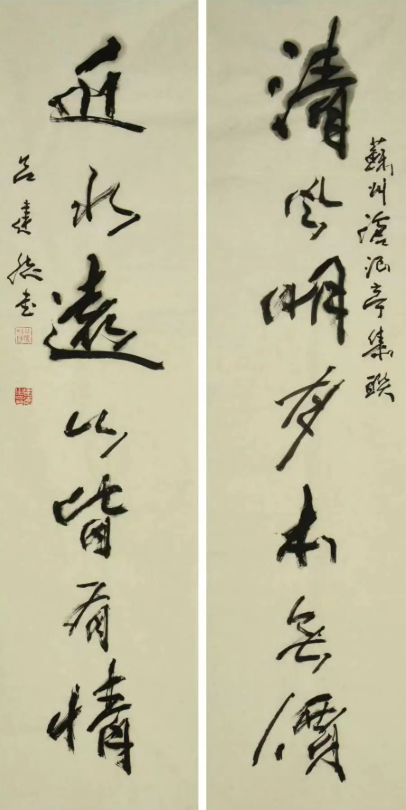 清風明月本無價
蘇州滄浪亭集聯
近水遠山皆有情
呂建書